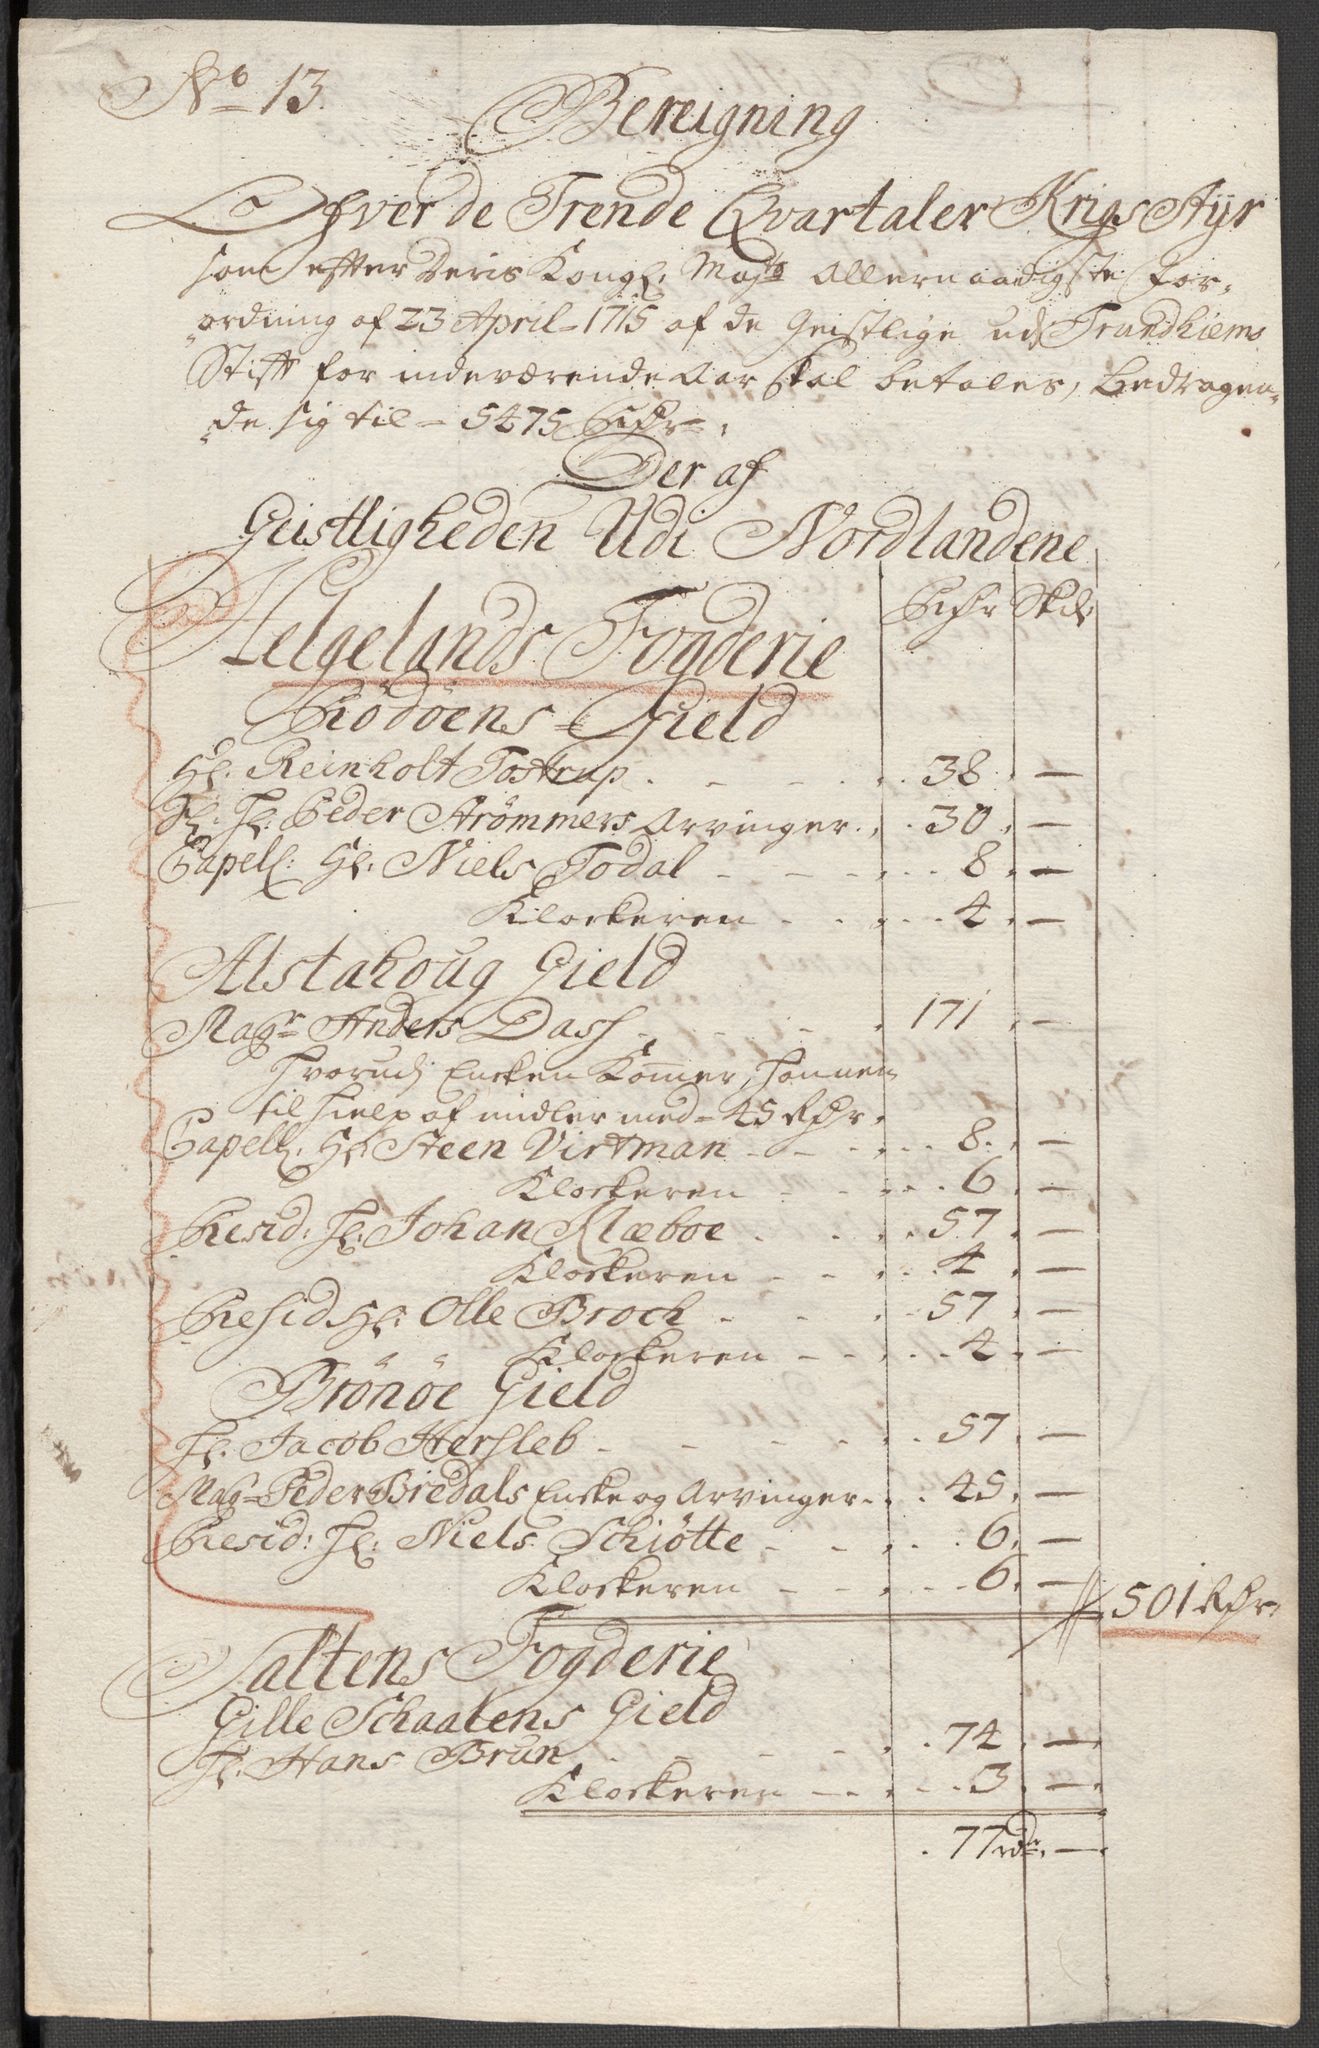 No 13
Bereigning
Ofver de Trende Qvartaler Krigs Styr
som efter Deris Kongl: Mayts Allernaadigste For,
ordning af 23 April 1715 af de Geistlige udj Trundhiems
Stift for indeværende Aar skal betales, bedragen,
de sig til 5475 Rdr
Der af
Geistligheden Udi Nordlandene
Rdr Skil
Helgelands Fogderie
Rödöens Gield
Hr. Reinholt Tostrup 38 –
Sl: Hr: Peder Strömmers Arvinger 30 –
Capell: Hr: Niels Todal 8 –
Klockeren 4 –
Alstahoug Gield
Magr Anders Dass 171 –
Hvorudj Encken Kommer, hannem
til hielp af midler med 45 Rdr.
Capell. Hr Steen Virtman 8 –
Klockeren 6 –
Resid: Hr: Johan Klæboe 57 –
Klockeren 4 –
Resid Hr: Olle Broch 57 –
Klockeren 4 –
Brönöe Gield
Hr. Jacob Hersleb 57 –
Magr Peder Bredals Encke og Arvinger 45 –
Resid: Hr: Niels Schiötte 6 –
Klockeren 6 –
501 Rdr
Saltens Fogderie
Gille Schaalens Gield
Hr. Hans Brun 74 –
Klockeren 3 –
77 rdr –